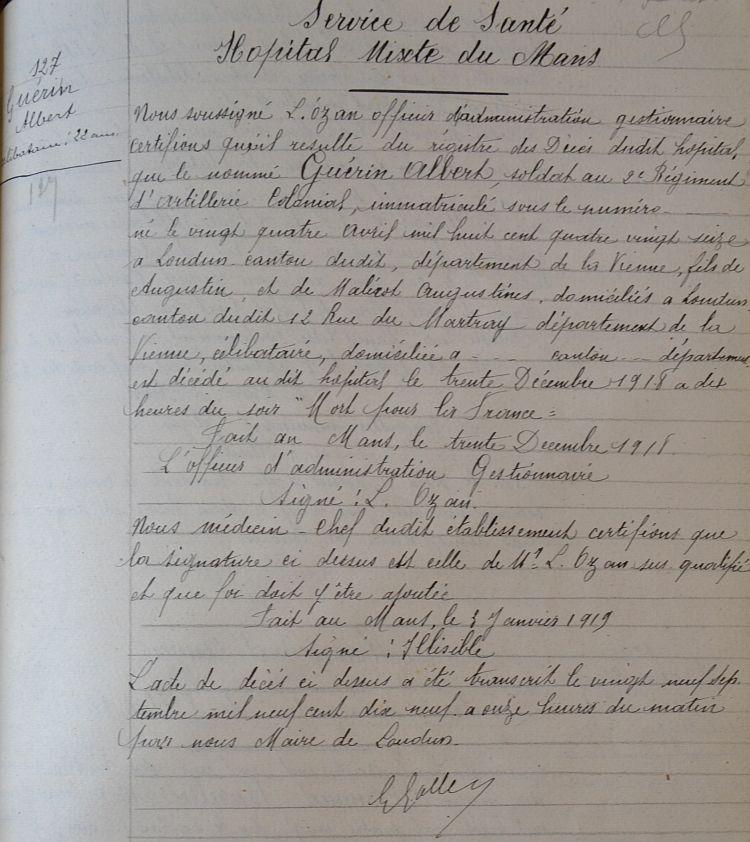 Service de Santé
Hopital Mixte du Mans
127
Guérin
Albert
célibataire : 22 ans.
127
Nous soussigné L. Ozan officier d'administration gestionnaire
certifions qu'il resulte du régistre des Décès dudit hopital,
que le nommé Guérin Albert, soldat au 2e Régiment
d'Artillerie Colonial, immatriculé sous le numéro
né le vingt quatre Avril mil huit cent quatre vingt seize
a Loudun canton dudit, département de la Vienne, fils de
Augustin, et de Malécot Augustines, domiciliés a Loudun
canton dudit 12 Rue du Martray département de la
Vienne, célibataire, domiciliée a - - - canton - - - département
est décédé au dit hopital le trente Décembre 1918 a dix
heures du soir "Mort pour la France =
Fait au Mans, le trente Decembre 1918.
L'officier d'administration Gestionnaire
Signé : L. Ozan.
Nous médecin - Chef dudit établissement certifions que
la signature ci dessus est celle de Mr L. Ozan sus qualifié
et que foi doit y être ajoutée
Fait au Mans, le 3 Janvier 1919
Signé : Illisible
L'acte de décès ci dessus a été transcrit le vingt neuf Sep-
tembre mil neuf cent dix neuf a onze heures du matin
par nous Maire de Loudun.